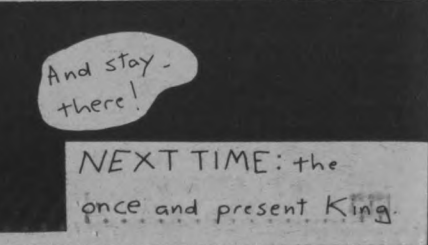 And stay -
there!
NEXT TIME: the
once and present King.